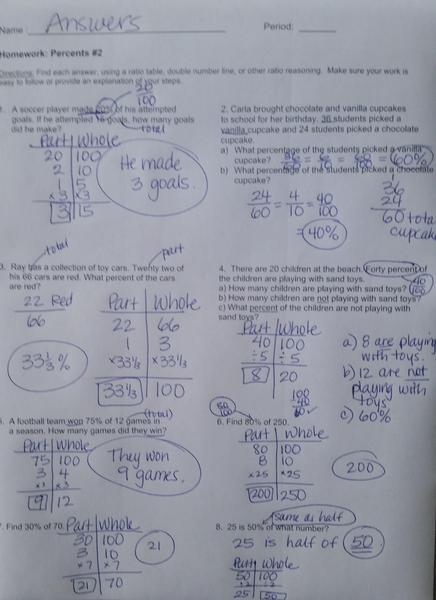 Name: Answers Period:
Homework: Percents #2
Directions: Find each answer, using a ratio table, double number line, or other ratio reasoning. Make sure your work is
easy to follow or provide an explanation of your steps.
20
100
1. A soccer player made 20% of his attempted
goals. If he attempted 15 goals, how many goals
did he make?
total
Part Whole
20 100
2 10
1 5
×3 ×3
3 15
He made
3 goals.
2. Carla brought chocolate and vanilla cupcakes
to school for her birthday. 36 students picked a
vanilla cupcake and 24 students picked a chocolate
cupcake.
a) What percentage of the students picked a vanilla
cupcake? 36/60 = 6/10 = 60/100 = 60%
b) What percentage of the students picked a chocolate
cupcake?
24/60 = 4/10 = 40/100
= 40%
36
24
60 total
cupcakes
total
part
3. Ray has a collection of toy cars. Twenty two of
his 66 cars are red. What percent of the cars
are red?
22 Red
66
33⅓%
Part Whole
22 66
1 3
×33⅓ ×33⅓
33⅓ 100
4. There are 20 children at the beach. Forty percent of
the children are playing with sand toys.
40
100
a) How many children are playing with sand toys?
b) How many children are not playing with sand toys?
c) What percent of the children are not playing with
sand toys?
Part Whole
40 100
÷5 ÷5
8 20
100
40
60
a) 8 are playing
with toys.
b) 12 are not
playing with
toys
c) 60%
(total)
5. A football team won 75% of 12 games in
a season. How many games did they win?
Part Whole
75 100
3 4
×3 ×3
9 12
They won
9 games.
80
100
6. Find 80% of 250.
Part Whole
80 100
8 10
×25 ×25
200 250
200
7. Find 30% of 70.
Part Whole
30 100
3 10
×7 ×7
21 70
21
same as half
8. 25 is 50% of what number?
25 is half of 50
Part Whole
50 100
÷2 ÷2
25 50